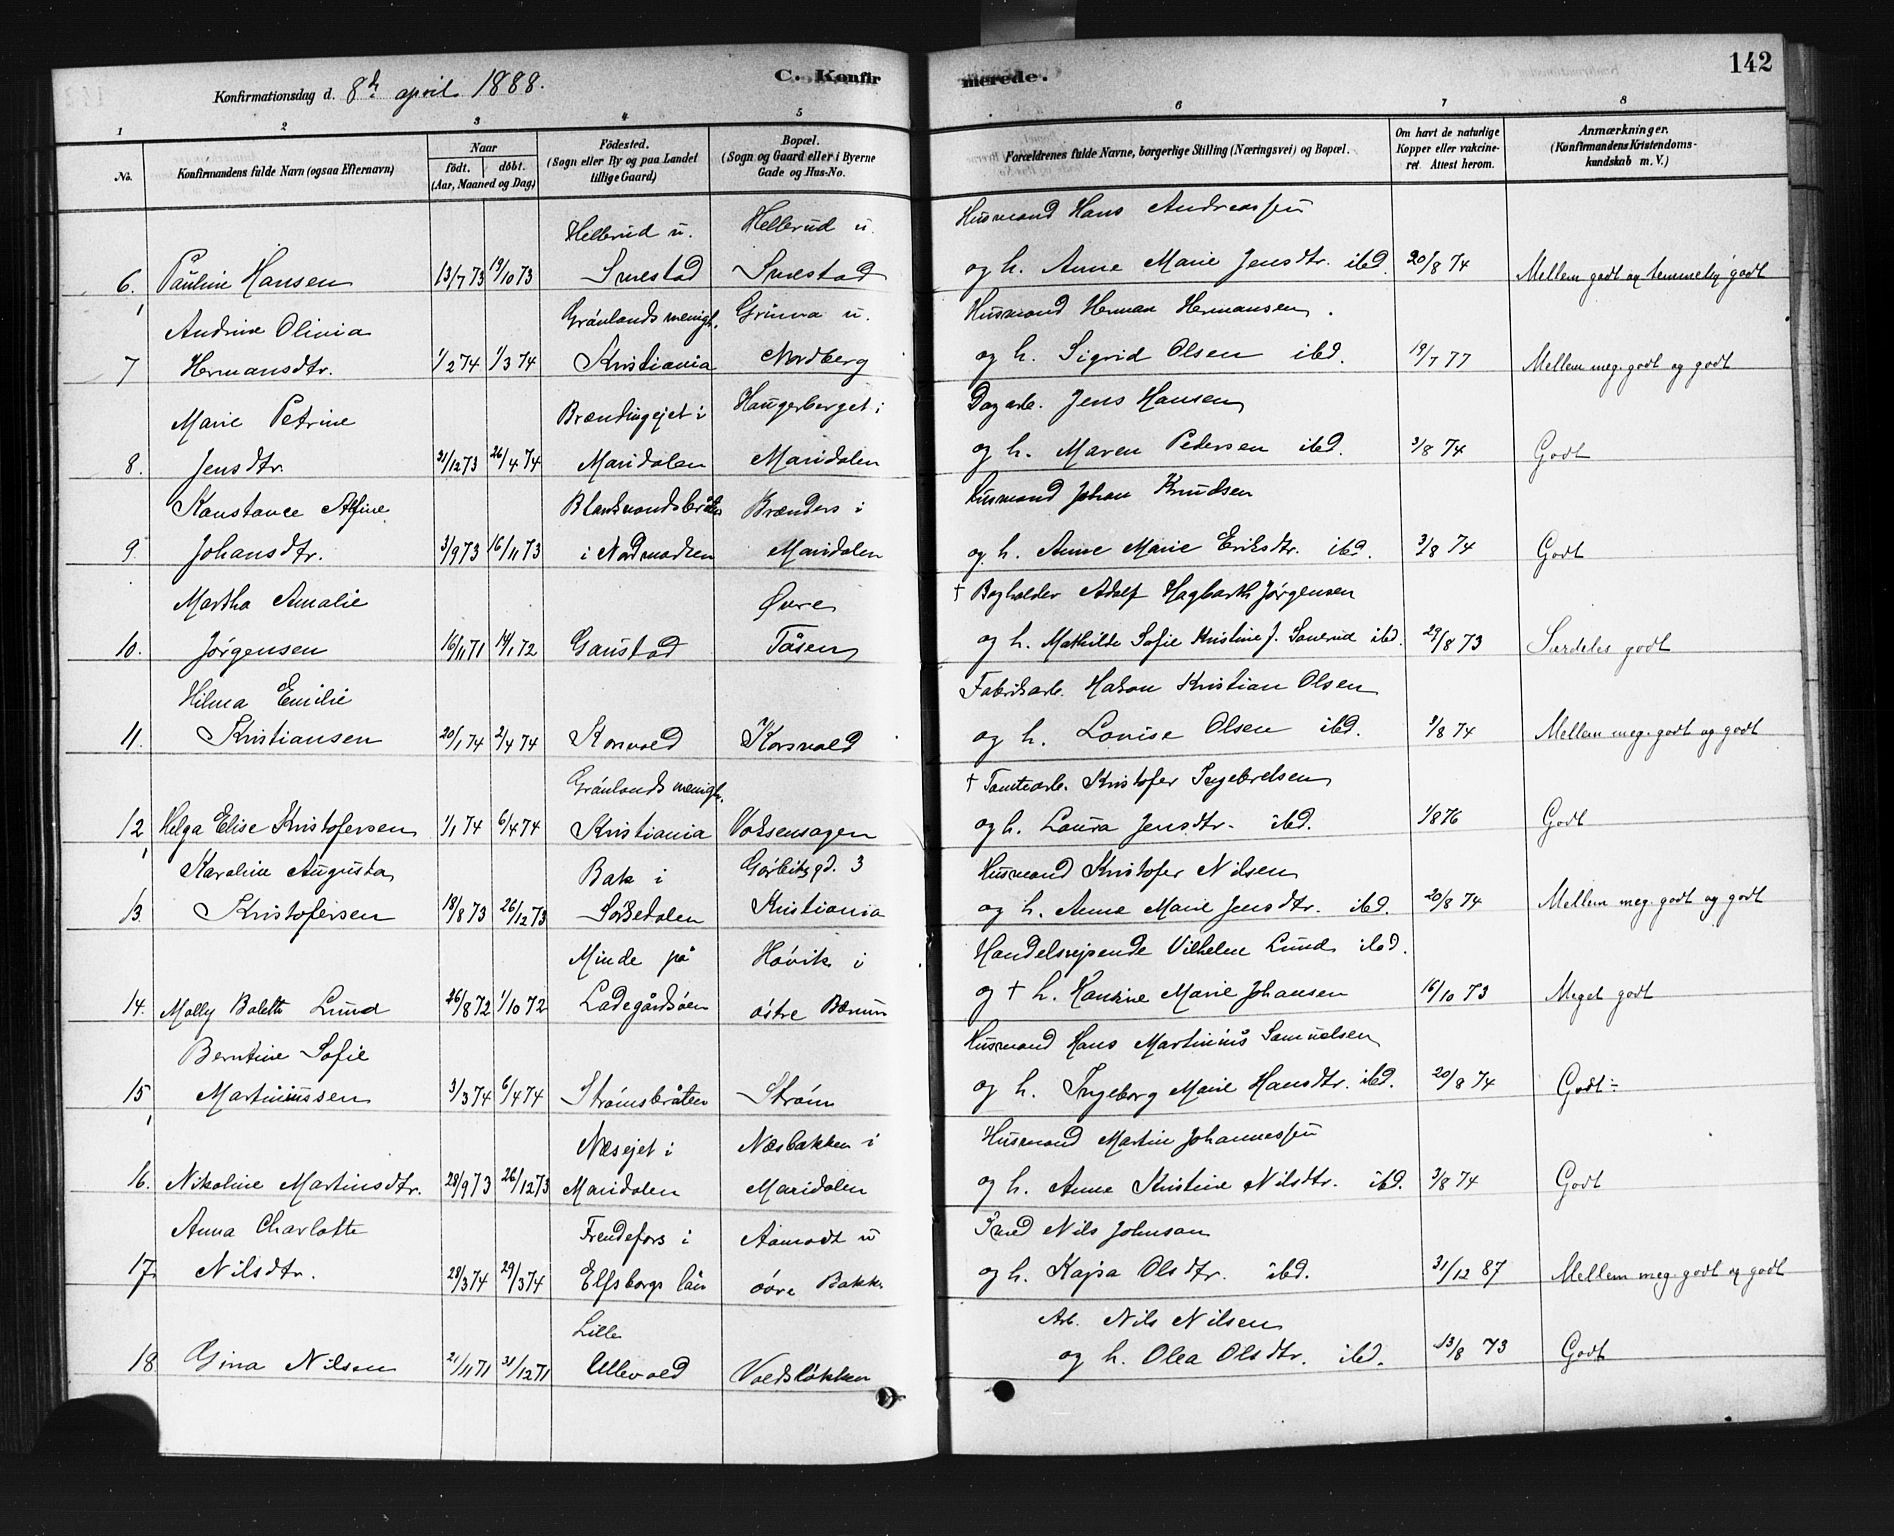 Konfirmationsdag d. 8de april 1888.
C. Konfir
merede.
142
1 2 3 4 5 6 7 8
No.
Konfirmandens fulde Navn (ogsaa Efternavn)
Naar
født. døbt.
(Aar, Maaned og Dag)
Fødested.
(Sogn eller By og paa Landet
tillige Gaard)
Bopæl.
(Sogn og Gaard eller i Byerne
Gade og Hus-No.
Forældrenes fulde Navne, borgerlige Stilling (Næringsvei) og Bopæl.
Om havt de naturlige
Kopper eller vakcine-
ret Attest herom.
Anmærkninger.
(Konfirmandens Kristendoms-
kundskab m. V.)
Hellerud u. Hellerud u. Husmand Hans Andreassen
6. Pauline Hansen 13/7 73 19/10 73 Smestad Smestad og h. Anne Marie Jensdtr. ibd. 20/8 74 Mellem godt og temmelig godt
Andrine Olivia Grønlands menigh. Grinna u. Husmand Herman Hermansen.
7 Hermansdtr. 1/2 74 1/3 74 Kristiania Nordberg og h. Sigrid Olsen ibd. 19/7 77 Mellem meg. godt og godt
Marie Petrine Brændingejet i Haugerberget i Dagarb. Jens Hansen
8. Jensdtr. 21/12 73 26/4 74 Maridalen Maridalen og h. Maren Pedersen ibd. 3/8 74 Godt
Konstance Alfine Blankvandsbråten Brænders i Husmand Johan Knudsen
9. Johansdtr. 3/9 73 16/11 73 i Nordmarken Maridalen og h. Anne Marie Eriksdtr. ibd. 3/8 74 Godt
Martha Amalie Øvre † Bogholder Adolf Hagbarth Jørgensen
10. Jørgensen 16/11 71 14/1 72 Gaustad Tåsen og h. Mathilde Sofie Kristine J. Sanerud ibd. 29/8 73 Særdeles godt
Hilma Emilie Fabrikarb. Hakon Kristian Olsen
11. Kristiansen 20/1 74 2/4 74 Korsvold Korsvold og h. Lovise Olsen ibd. 3/8 74 Mellem meg. godt og godt
Grønlands menigh. † Tomtearb. Kristofer Ingebretsen
12 Helga Elise Kristofersen 1/1 74 6/4 74 Kristiania Voksenskogen og h. Laura Jensdtr. ibd. 1/8 76 Godt
Karoline Augusta Bak i Gørbitzgd. 3 Husmand Kristofer Nilsen
13 Kristofersen 18/8 73 26/12 73 Sørkedalen Kristiania og h. Anne Marie Jensdtr. ibd. 20/8 74 Mellem meg. godt og godt
Minde på Høvik i Handelsrejsende Vilhelm Lund ibd.
14. Molly Bolette Lund 26/8 72 1/10 72 Ladegårdsøen østre Bærum og † h. Hansine Marie Johansen 16/10 73 Meget godt
Berntine Sofie Husmand Hans Martinius Samuelsen
15 Martiniussen 3/3 74 6/4 74 Strømsbråten Strøm og h. Ingeborg Marie Hansdtr. ibd. 20/8 74 Godt -
Næsejet i Næsbakken i Husmand Martin Johannessen
16. Nikoline Martinsdtr. 28/9 73 26/12 73 Maridalen Maridalen og h. Anne Kristine Nilsdtr. ibd. 3/8 74 Godt
Anna Charlotte Frendefors i Aamodt u Smed Nils Johnson
17. Nilsdtr. 28/3 74 29/3 74 Elfsborgs län øvre Bakk. og h. Kajsa Olsdtr. ibd. 31/12 87 Mellem meg. godt og godt
Lille Arb. Nils Nilsen
18 Gina Nilsen 21/11 71 31/12 71 Ullevold Voldsløkken og h. Olea Olsdtr. ibd. 13/8 73 Godt